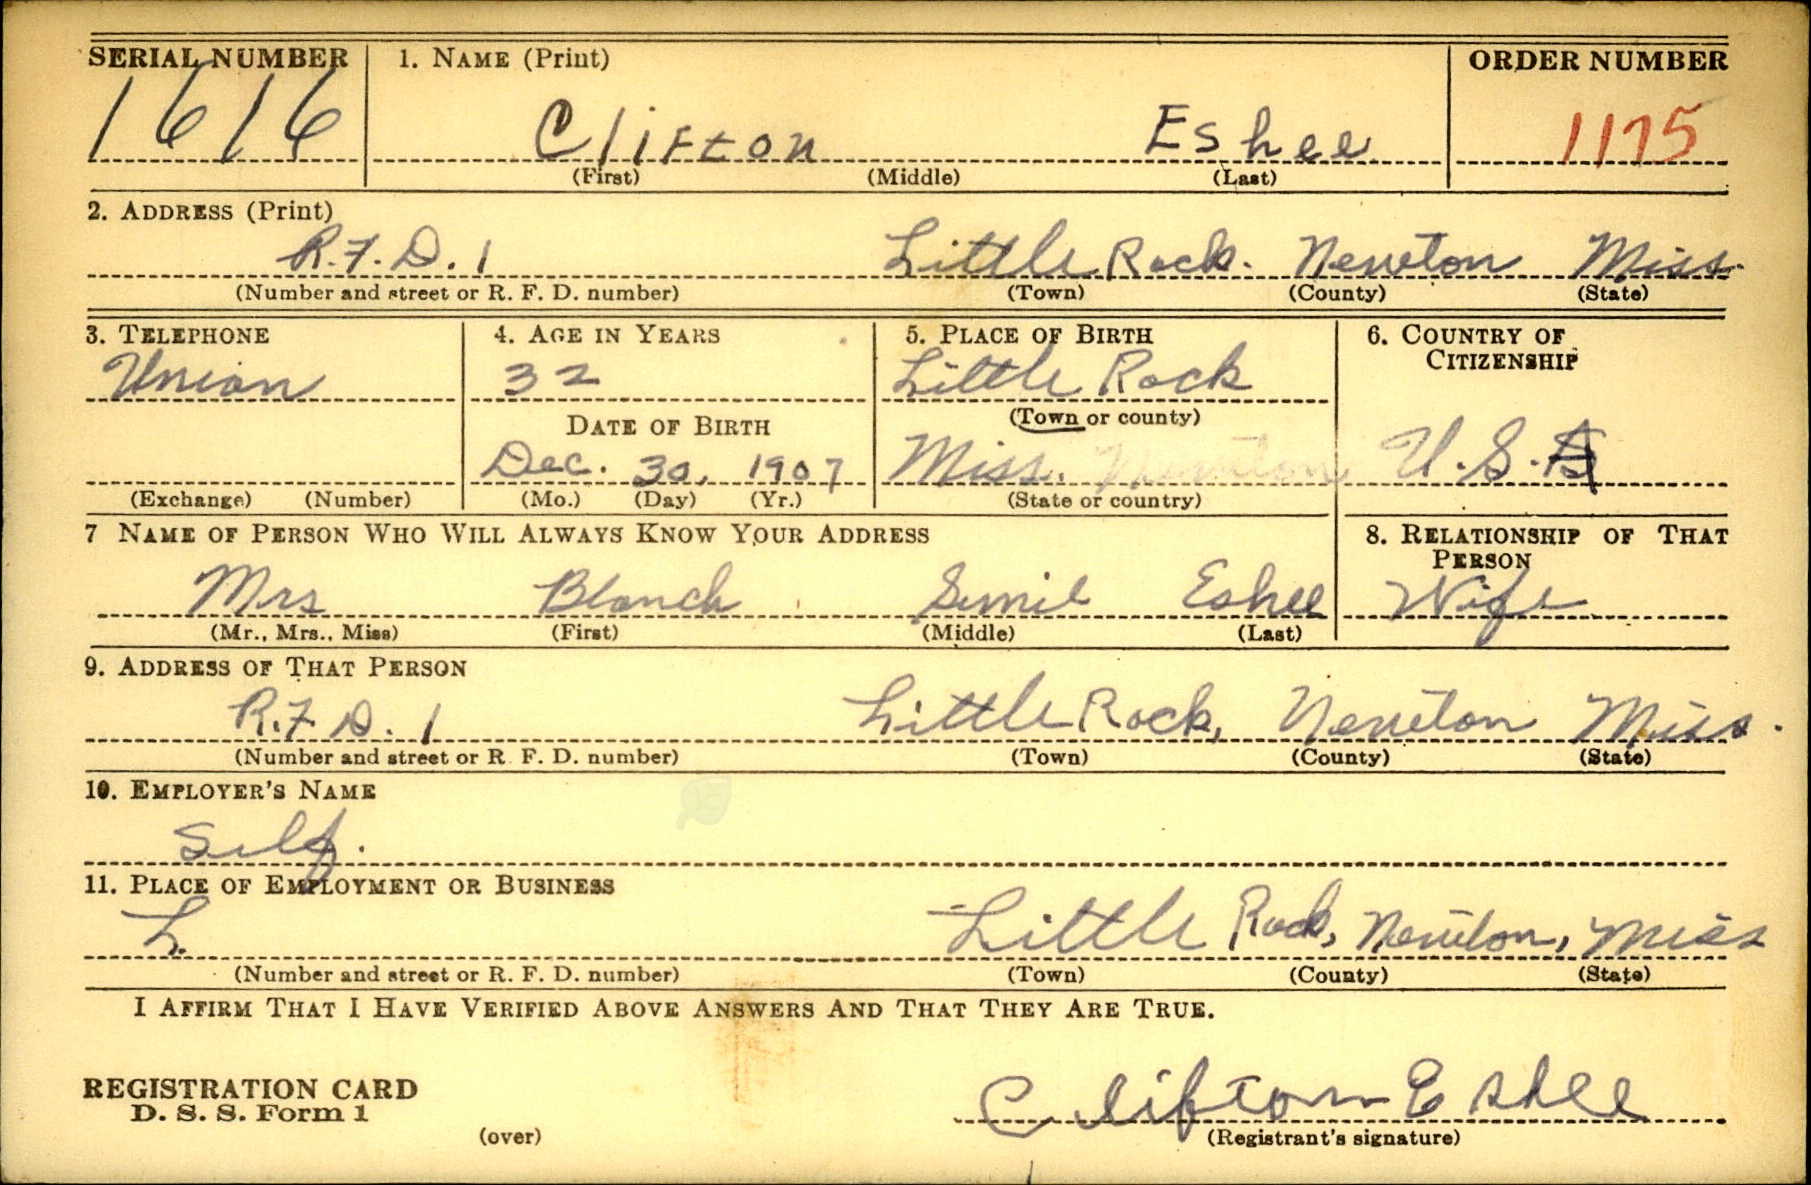 SERIAL NUMBER 1. NAME (Print) ORDER NUMBER
1616 Clifton Eshee 1175
(First) (Middle) (Last)
2. ADDRESS (Print)
R.F.D. 1 Little Rock. Newton Miss.
(Number and street or R. F. D. number) (Town) (County) (State)
3. TELEPHONE 4. AGE IN YEARS 5. PLACE OF BIRTH 6. COUNTRY OF CITIZENSHIP
Union 32 Little Rock
DATE OF BIRTH (Town or county)
Dec. 30, 1907 Miss. Newton U.S.A
(Exchange) (Number) (Mo.) (Day) (Yr.) (State or country)
7 NAME OF PERSON WHO WILL ALWAYS KNOW YOUR ADDRESS 8. RELATIONSHIP OF THAT PERSON
Mrs Blanch Eshee Wife
(Mr., Mrs., Miss) (First) (Middle) (Last)
9. ADDRESS OF THAT PERSON
R.F.D. 1 Little Rock, Newton Miss.
(Number and street or R. F. D. number) (Town) (County) (State)
10. EMPLOYER'S NAME
Self.
11. PLACE OF EMPLOYMENT OR BUSINESS
L. Little Rock, Newton, Miss
(Number and street or R. F. D. number) (Town) (County) (State)
I AFFIRM THAT I HAVE VERIFIED ABOVE ANSWERS AND THAT THEY ARE TRUE.
REGISTRATION CARD
D. S. S. Form 1 Clifton Eshee
(over) (Registrant's signature)